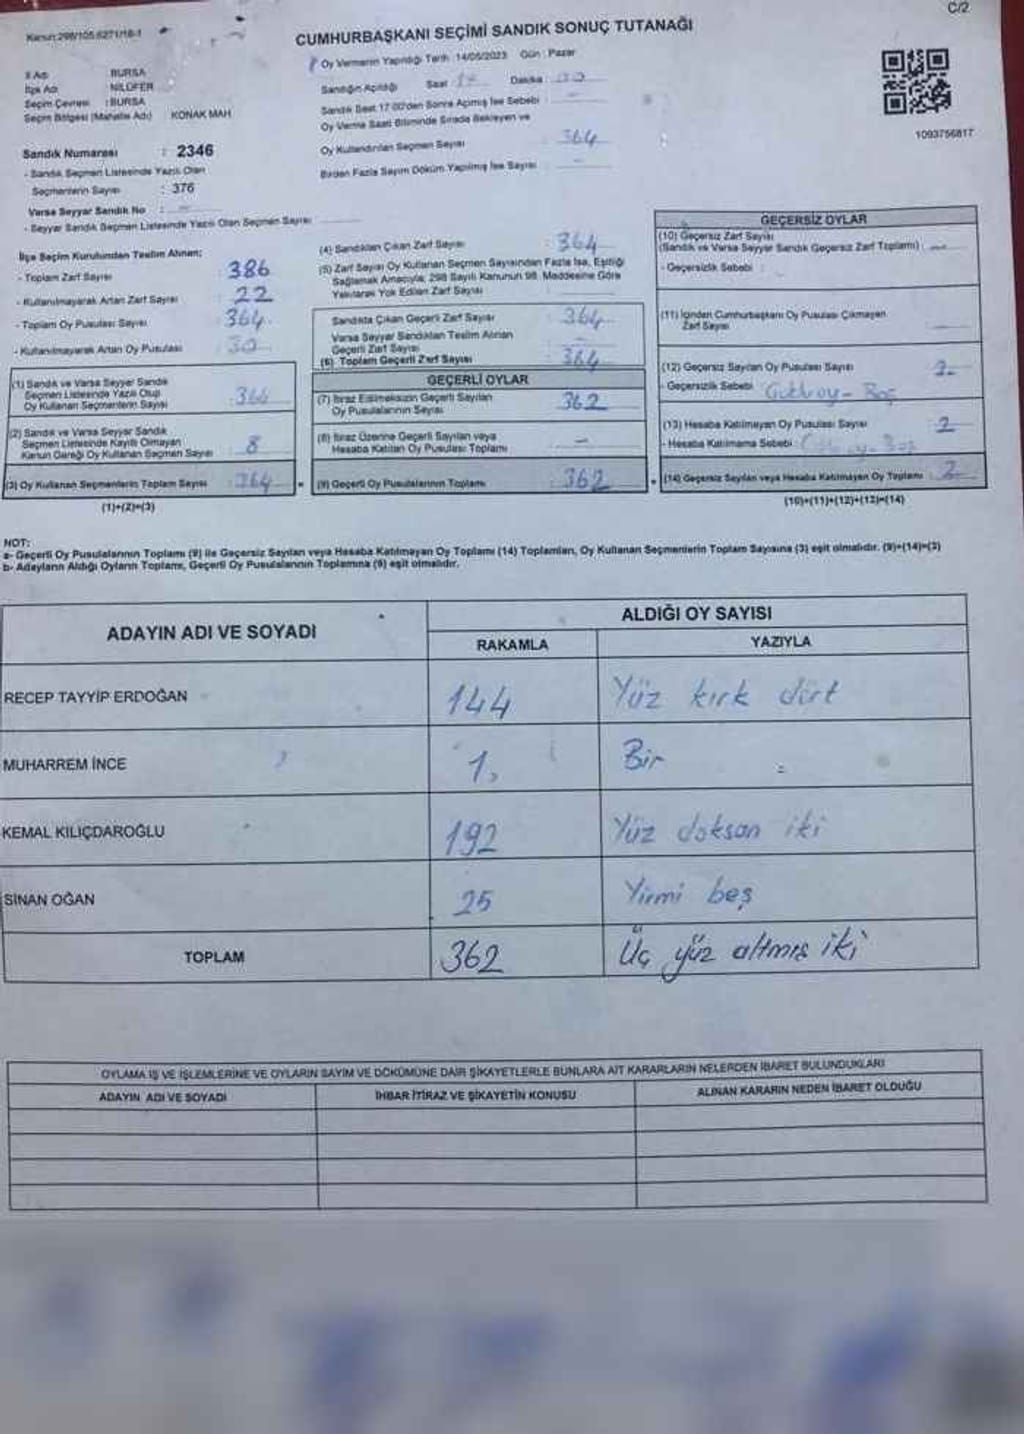 C/2
Kanun:298/105.6271/18-1
CUMHURBAŞKANI SEÇİMİ SANDIK SONUÇ TUTANAĞI
Oy Vermenin Yapıldığı Tarih : 14/05/2023 Gün : Pazar
İl Adı BURSA
İlçe Adı NİLÜFER
Seçim Çevresi : BURSA
Seçim Bölgesi (Mahalle Adı) : KONAK MAH
Sandık Numarası : 2346
- Sandık Seçmen Listesinde Yazılı Olan
Seçmenlerin Sayısı : 376
Varsa Seyyar Sandık No :
- Seyyar Sandık Seçmen Listesinde Yazılı Olan Seçmen Sayısı
Sandığın Açıldığı Saat : Dakika :
Sandık Saat 17.00'den Sonra Açılmış İse Sebebi :
Oy Verme Saati Bitiminde Sırada Bekleyen ve
Oy Kullandırılan Seçmen Sayısı 364
Birden Fazla Sayım Döküm Yapılmış İse Sayısı
1093756817
İlçe Seçim Kurulundan Teslim Alınan;
- Toplam Zarf Sayısı : 386
- Kullanılmayarak Artan Zarf Sayısı : 22
- Toplam Oy Pusulası Sayısı : 364
- Kullanılmayarak Artan Oy Pusulası : 30
(1) Sandık ve Varsa Seyyar Sandık
Seçmen Listesinde Yazılı Olup
Oy Kullanan Seçmenlerin Sayısı
(2) Sandık ve Varsa Seyyar Sandık
Seçmen Listesinde Kayıtlı Olmayan
Kanun Gereği Oy Kullanan Seçmen Sayısı 8
(3) Oy Kullanan Seçmenlerin Toplam Sayısı : 364
(1)+(2)=(3)
(4) Sandıktan Çıkan Zarf Sayısı : 364
(5) Zarf Sayısı Oy Kullanan Seçmen Sayısından Fazla İse, Eşitliği
Sağlamak Amacıyla, 298 Sayılı Kanunun 98. Maddesine Göre
Yakılarak Yok Edilen Zarf Sayısı :
Sandıkta Çıkan Geçerli Zarf Sayısı : 364
Varsa Seyyar Sandıktan Teslim Alınan
Geçerli Zarf Sayısı
(6) Toplam Geçerli Zarf Sayısı : 364
GEÇERLİ OYLAR
(7) İtiraz Edilmeksizin Geçerli Sayılan
Oy Pusulalarının Sayısı 362
(8) İtiraz Üzerine Geçerli Sayılan veya
Hesaba Katılan Oy Pusulası Toplamı –
(9) Geçerli Oy Pusulalarının Toplamı : 362
GEÇERSİZ OYLAR
(10) Geçersiz Zarf Sayısı
(Sandık ve Varsa Seyyar Sandık Geçersiz Zarf Toplamı) : –
- Geçersizlik Sebebi :
(11) İçinden Cumhurbaşkanı Oy Pusulası Çıkmayan
Zarf Sayısı
(12) Geçersiz Sayılan Oy Pusulası Sayısı 2
- Geçersizlik Sebebi : Boş
(13) Hesaba Katılmayan Oy Pusulası Sayısı 2
- Hesaba Katılmama Sebebi : Boş
(14) Geçersiz Sayılan veya Hesaba Katılmayan Oy Toplamı : 2
(10)+(11)+(12)+(13)=(14)
NOT:
a- Geçerli Oy Pusulalarının Toplamı (9) ile Geçersiz Sayılan veya Hesaba Katılmayan Oy Toplamı (14) Toplamları, Oy Kullanan Seçmenlerin Toplam Sayısına (3) eşit olmalıdır. (9)+(14)=(3)
b- Adayların Aldığı Oyların Toplamı, Geçerli Oy Pusulalarının Toplamına (9) eşit olmalıdır.
ADAYIN ADI VE SOYADI ALDIĞI OY SAYISI
RAKAMLA YAZIYLA
RECEP TAYYİP ERDOĞAN 144 Yüz kırk dört
MUHARREM İNCE 1 Bir
KEMAL KILIÇDAROĞLU 192 Yüz doksan iki
SİNAN OĞAN 25 Yirmi beş
TOPLAM 362 Üç yüz altmış iki
OYLAMA İŞ VE İŞLEMLERİNE VE OYLARIN SAYIM VE DÖKÜMÜNE DAİR ŞİKAYETLERLE BUNLARA AİT KARARLARIN NELERDEN İBARET BULUNDUKLARI
ADAYIN ADI VE SOYADI İHBAR İTİRAZ VE ŞİKAYETİN KONUSU ALINAN KARARIN NEDEN İBARET OLDUĞU